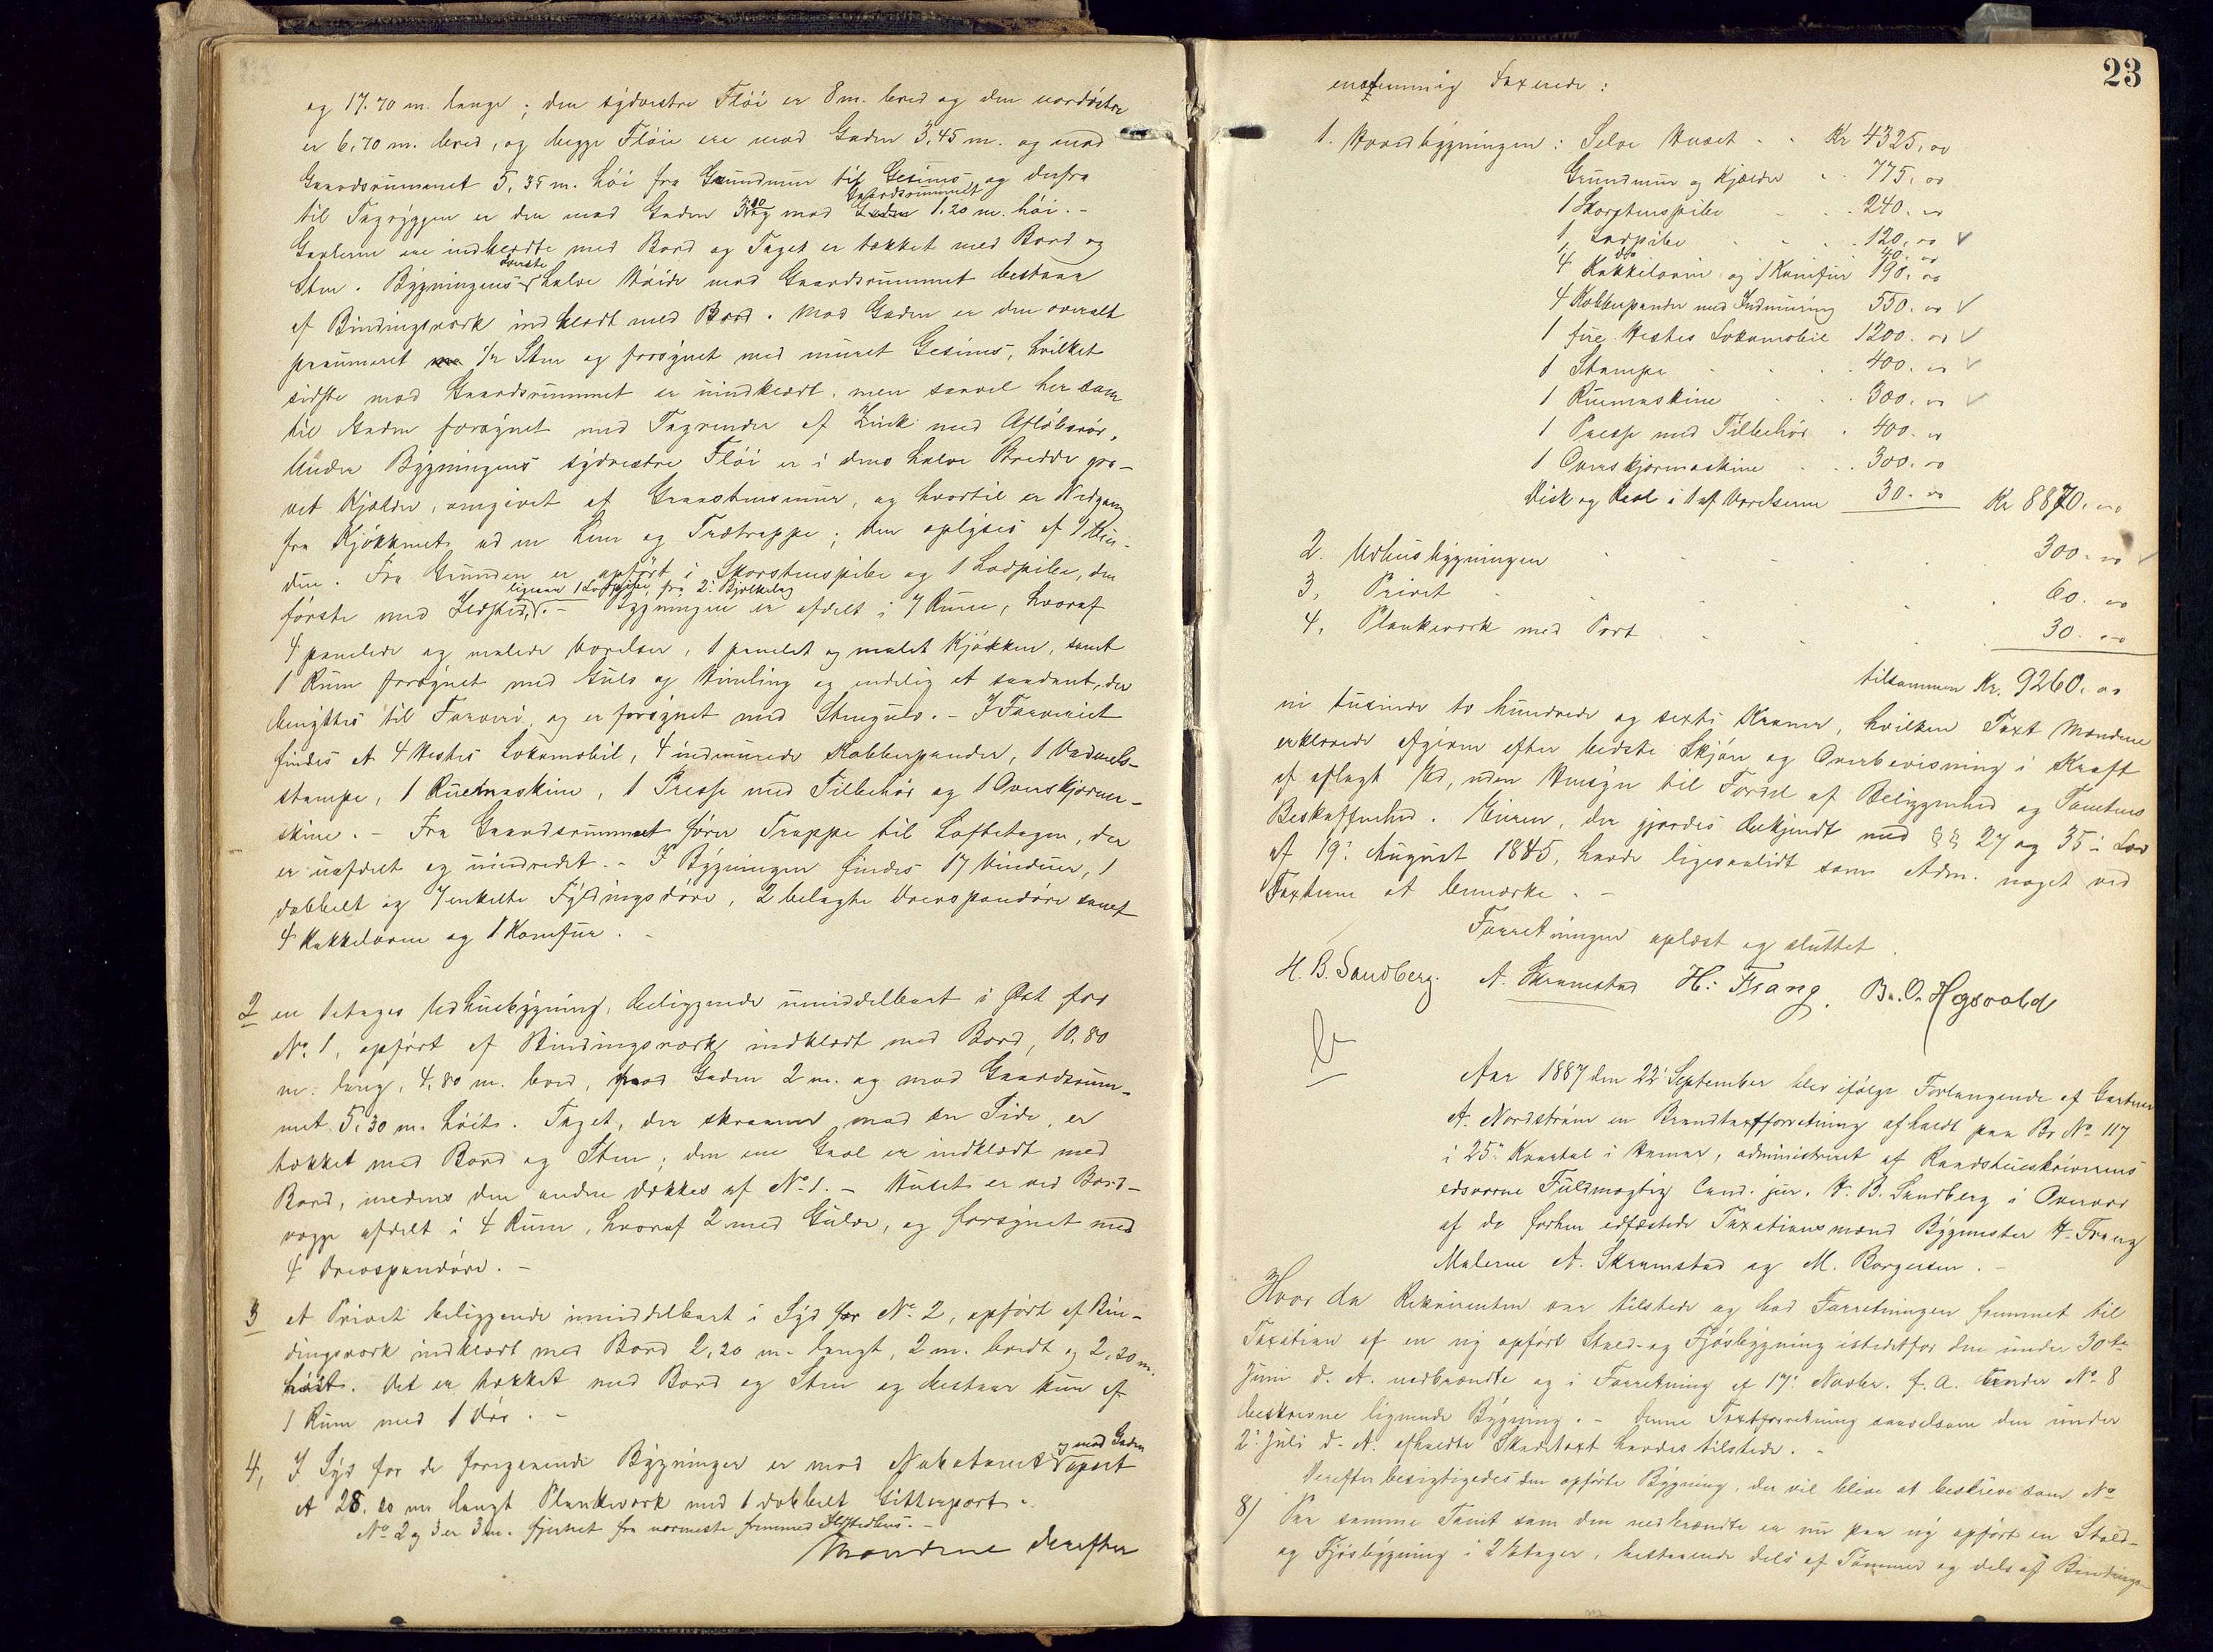 og 17.70 m. lange; den sydvestre Fløi er 8 m. bred og den nordøstre
er 6,70 m. bred, og begge Fløie ere mod Gaden 3,45 m. og mod
Gaardsrummet 5,35 m. høi fra Grundmur til Gesims og derfra
Gaardsrummet
til Tagryggen er den mod Gaden 3,10 og mod Gaden 1,20 m. høi. -
Gavlerne ere indklædte med Bord og Taget er tækket med Bord og
øverste
Sten. Bygningens halve Høide mod Gaardsrummet bestaar
af Bindingsværk indklædt med Bord. Mod Gaden er den overalt
paamuret 1/2 Sten og forsynet med muret Gesims, hvilket
sidste mod Gaardsrummet er uindklædt, men saavel her som
til Gaden forsynet med Tagrender af Zink med Afløbsrør.
Under Bygningens sydvestre Fløi er i dens halve Bredde gra-
vet Kjælder, omgivet af Graastensmur, og hvortil er Nedgang
fra Kjøkkenet ad en Lem og Trætrappe; den oplyses af 1 Vin-
due. Fra Grunden er opført 1 Skorstenspibe og 1 Lodpibe, den
ligesaa 1 Lodpibe, fra 2. Bjælkelag
første med Ildsted. - Bygningen er afdelt i 7 Rum, hvoraf
4 panelede og malede Værelser, 1 panelet og malet Kjøkken, samt
1 Rum forsynet med Gulv og Himling og endelig et saadant, der
benyttes til Farveri og er forsynet med Stengulv. - I Farveriet
findes et 4 Hestes Lokomobil, 4 indmurede Kobberpander, 1 Vadmels-
stampe, 1 Ruemaskine, 1 Presse med Tilbehør og 1 Overskjærma-
skine. - Fra Gaardsrummet fører Trappe til Loftetagen, der
er uafdelt og uindredet. - I Bygningen findes 17 Vinduer, 1
dobbelt og 7 enkelte Fyldingsdøre, 2 belagte Drevspandøre samt
4 Kakkelovne og 1 Komfur. -
2 en 1 etages Udhusbygning, beliggende umiddelbart i Øst for
No. 1, opført af Bindingsværk indklædt med Bord, 10.80
m. lang, 4,80 m. bred, mod Gaden 2 m. og mod Gaardsrum-
met 5,30 m. høit. Taget, der skraaner mod en Side, er
tækket med Bord og Sten; den ene Gavl er indklædt med
Bord, medens den anden dækkes af No. 1. - Huset er ved Bord-
vægge afdelt i 4 Rum, hvoraf 2 med Gulve, og forsynet med
4 Drevspandøre. -
3 et Privet beliggende umiddelbart i Syd for No. 2, opført af Bin-
dingsværk indklædt med Bord 2,20 m. langt, 2 m. bredt og 2,20 m.
høit. Det er tækket med Bord og Sten og bestaar kun af
1 Rum med 1 Dør. -
og mod Gaden
4, I Syd for de foregaaende Bygninger er mod Nabotomt opsat
et 28.20 m langt Plankeværk med 1 dobbelt Gitterport.
No. 2 og 3 er 3 m. fjernet fra nærmeste fremmed Ildstedhus. -
Mændene derefter
23
enstemmig Taxerede:
1. Hovedbygningen: Selve Huset - - Kr 4325,00
Grundmur og Kjælder - - 775,00
1 Skorstenspibe - - 240.00
1 Lodpibe - - - 120,00 ✓
1 do 40.00
4 Kakkelovne og 1 Komfur 190.00
4 Kobberpander med Indmuring 550.00 ✓
1 fire Hestes Lokomobil 1200.00 ✓
1 Stampe - - 400.00 ✓
1 Ruemaskine - - 300.00 ✓
1 Presse med Tilbehør - 400.00
1 Overskjærmaskine - - 300.00
Disk og Reol i 1 af Værelserne 30.00 Kr 8870.00
2. Udhusbygningen - - - 300.00 ✓
3, Privet - - - 60.00
4, Plankeværk med Port - - 30.00
tilsammen Kr. 9260.00
ni tusinde to hundrede og sexti Kroner, hvilken Taxt Mændene
erklærede afgiven efter bedste Skjøn og Overbevisning i Kraft
af aflagt Ed, uden Hensyn til Fordel af Beliggenhed og Tomtens
Beskaffenhed. Eieren, der gjordes bekjendt med §§ 27 og 35 i Lov
af 19. August 1845, havde ligesaalidt som Adm. noget ved
Taxterne at bemærke. -
Forretningen oplæst og sluttet.
H. B. Sandberg. A. Skramstad H. Frang. B. O. Hgsvold
b
Aar 1887 den 22 September blev ifølge Forlangende af Gartner
A. Nordstrøm en Brandtaxtforretning afholdt paa Br. No. 117
i 25. Kvartal i Hamar, administreret af Raadstueskriverens
edsvorne Fuldmægtig Cand. jur. H. B. Sandberg i Overvær
af de forhen edfæstede Taxationsmænd Bygmester H. Frang
Malerne A. Skramstad og M. Borgersen. -
Hvor da Rekvirenten var tilstede og bad Forretningen fremmet til
Taxation af en ny opført Stald- og Fjøsbygning istedetfor den under 30te
Juni d. A. nedbrændte og i Forretning af 17. Novbr. f. A. under No. 8
beskrevne lignende Bygning. - Denne Taxtforretning saavelsom den under
2. Juli d. A. afholdte Skadetaxt havdes tilstede. -
Derefter besigtigedes den opførte Bygning, der vil blive at beskrive som No
8) Paa samme Tomt som den nedbrændte er nu paa ny opført en Stald-
og Fjøsbygning i 2 Etager, bestaaende dels af Tømmer og dels af Bindings-